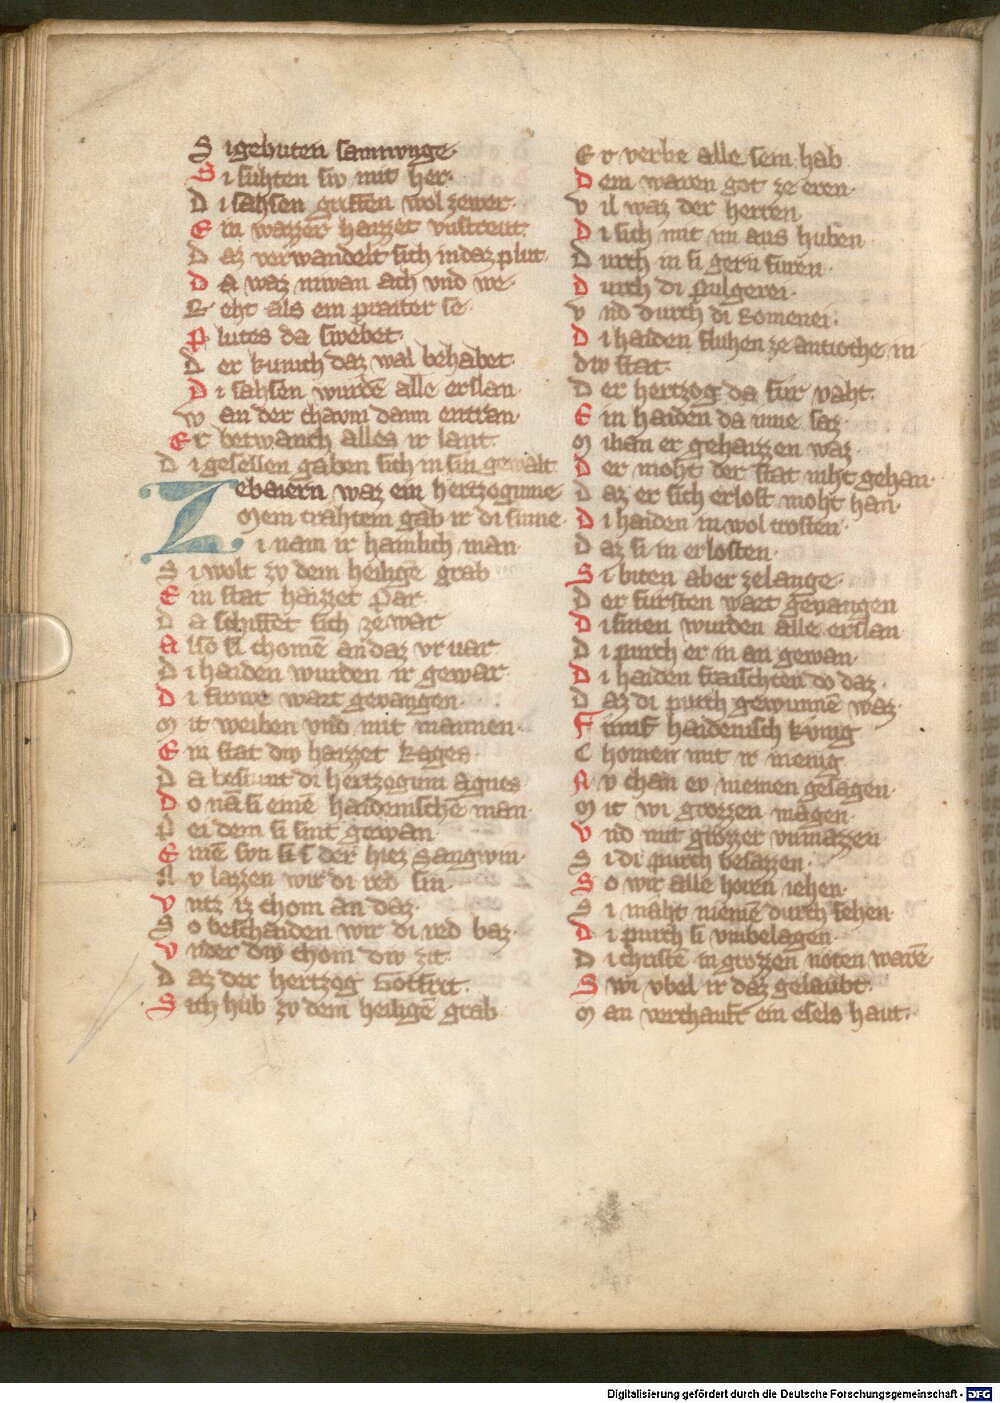 S igebuten samnvnge·
S i suhten siv mit her·
D i sahsen griffen wol zewer·
E in wazzer haizzet vnstreut·
D az verwandelt sich in daz plut·
D a waz niwan ach vnd we·
R eht als ein praiter se·
P lutes da swebet·
D er kunich daz wal behabet·
D i sahsen wurdē alle erslan·
W an der chavm dann entran·
E r betwanch alles ir lant·
D i gesellen gaben sich in sin gewalt
Z ebaiern waz ein hertzoginne
Mein trahtein gab ir di sinne·
S i nam ir haimlich man·
S i wolt zv dem heiligē grab
E in stat haizzet Par·
D a schiffet sich ze war
A lso si chomē an daz vruar
D i haiden wurden ir gewar·
D i frowe wart gevangen·
M it weiben vnd mit mannen·
E in stat div haizzet kages·
D a bestunt di hertzogin Agnes·
D o nā si einē haidenischē man·
P ei dem si sint gewan·
E inē svn si der hiez Sangwin·
N v lazzen wir di red sin·
V ntz iz chom an daz·
S o beschaiden wir di red baz·
V nder div chom div zit·
D az der hertzog Gotfrit·
S ich hub zv dem heiligē grab
E r verbe alle sein hab
D em waren got ze eren·
V il waz der herren
D i sich mit im aus huben
D urch in si gern furen·
D urch di pulgerei·
V nd durch di Romenei·
D i haiden fluhen ze antioche in
div stat·
D er hertzog da fur vaht·
E in haiden da inne saz
M ilian er gehaizzen waz·
D er moht der stat niht gehan·
D az er sich erlost moht han·
D i haiden in wol trosten·
D az si in erlosten·
S i biten aber zelange·
D er fursten wart gevangen
D i sinen wurden alle erslan·
D i purch er in an gewan·
D i haiden fraischten do daz·
D az di purch gewunnē waz·
F iumf haidenisch kvnig
C homen mit ir menig
N v chan ev niemen gesagen·
M it wi grozzen magen·
V nd mit grozzer vnmazzen
S i di purch besazzen·
S o wir alle horen iehen·
S i maht niemē durch sehen·
D i purch si vmbelagen·
D i christē in grozzen noten warē
S wi vbel ir daz gelaubt·
M an verchauft ein esels haut·
Digitalisierung gefördert durch die Deutsche Forschungsgemeinschaft - DFG